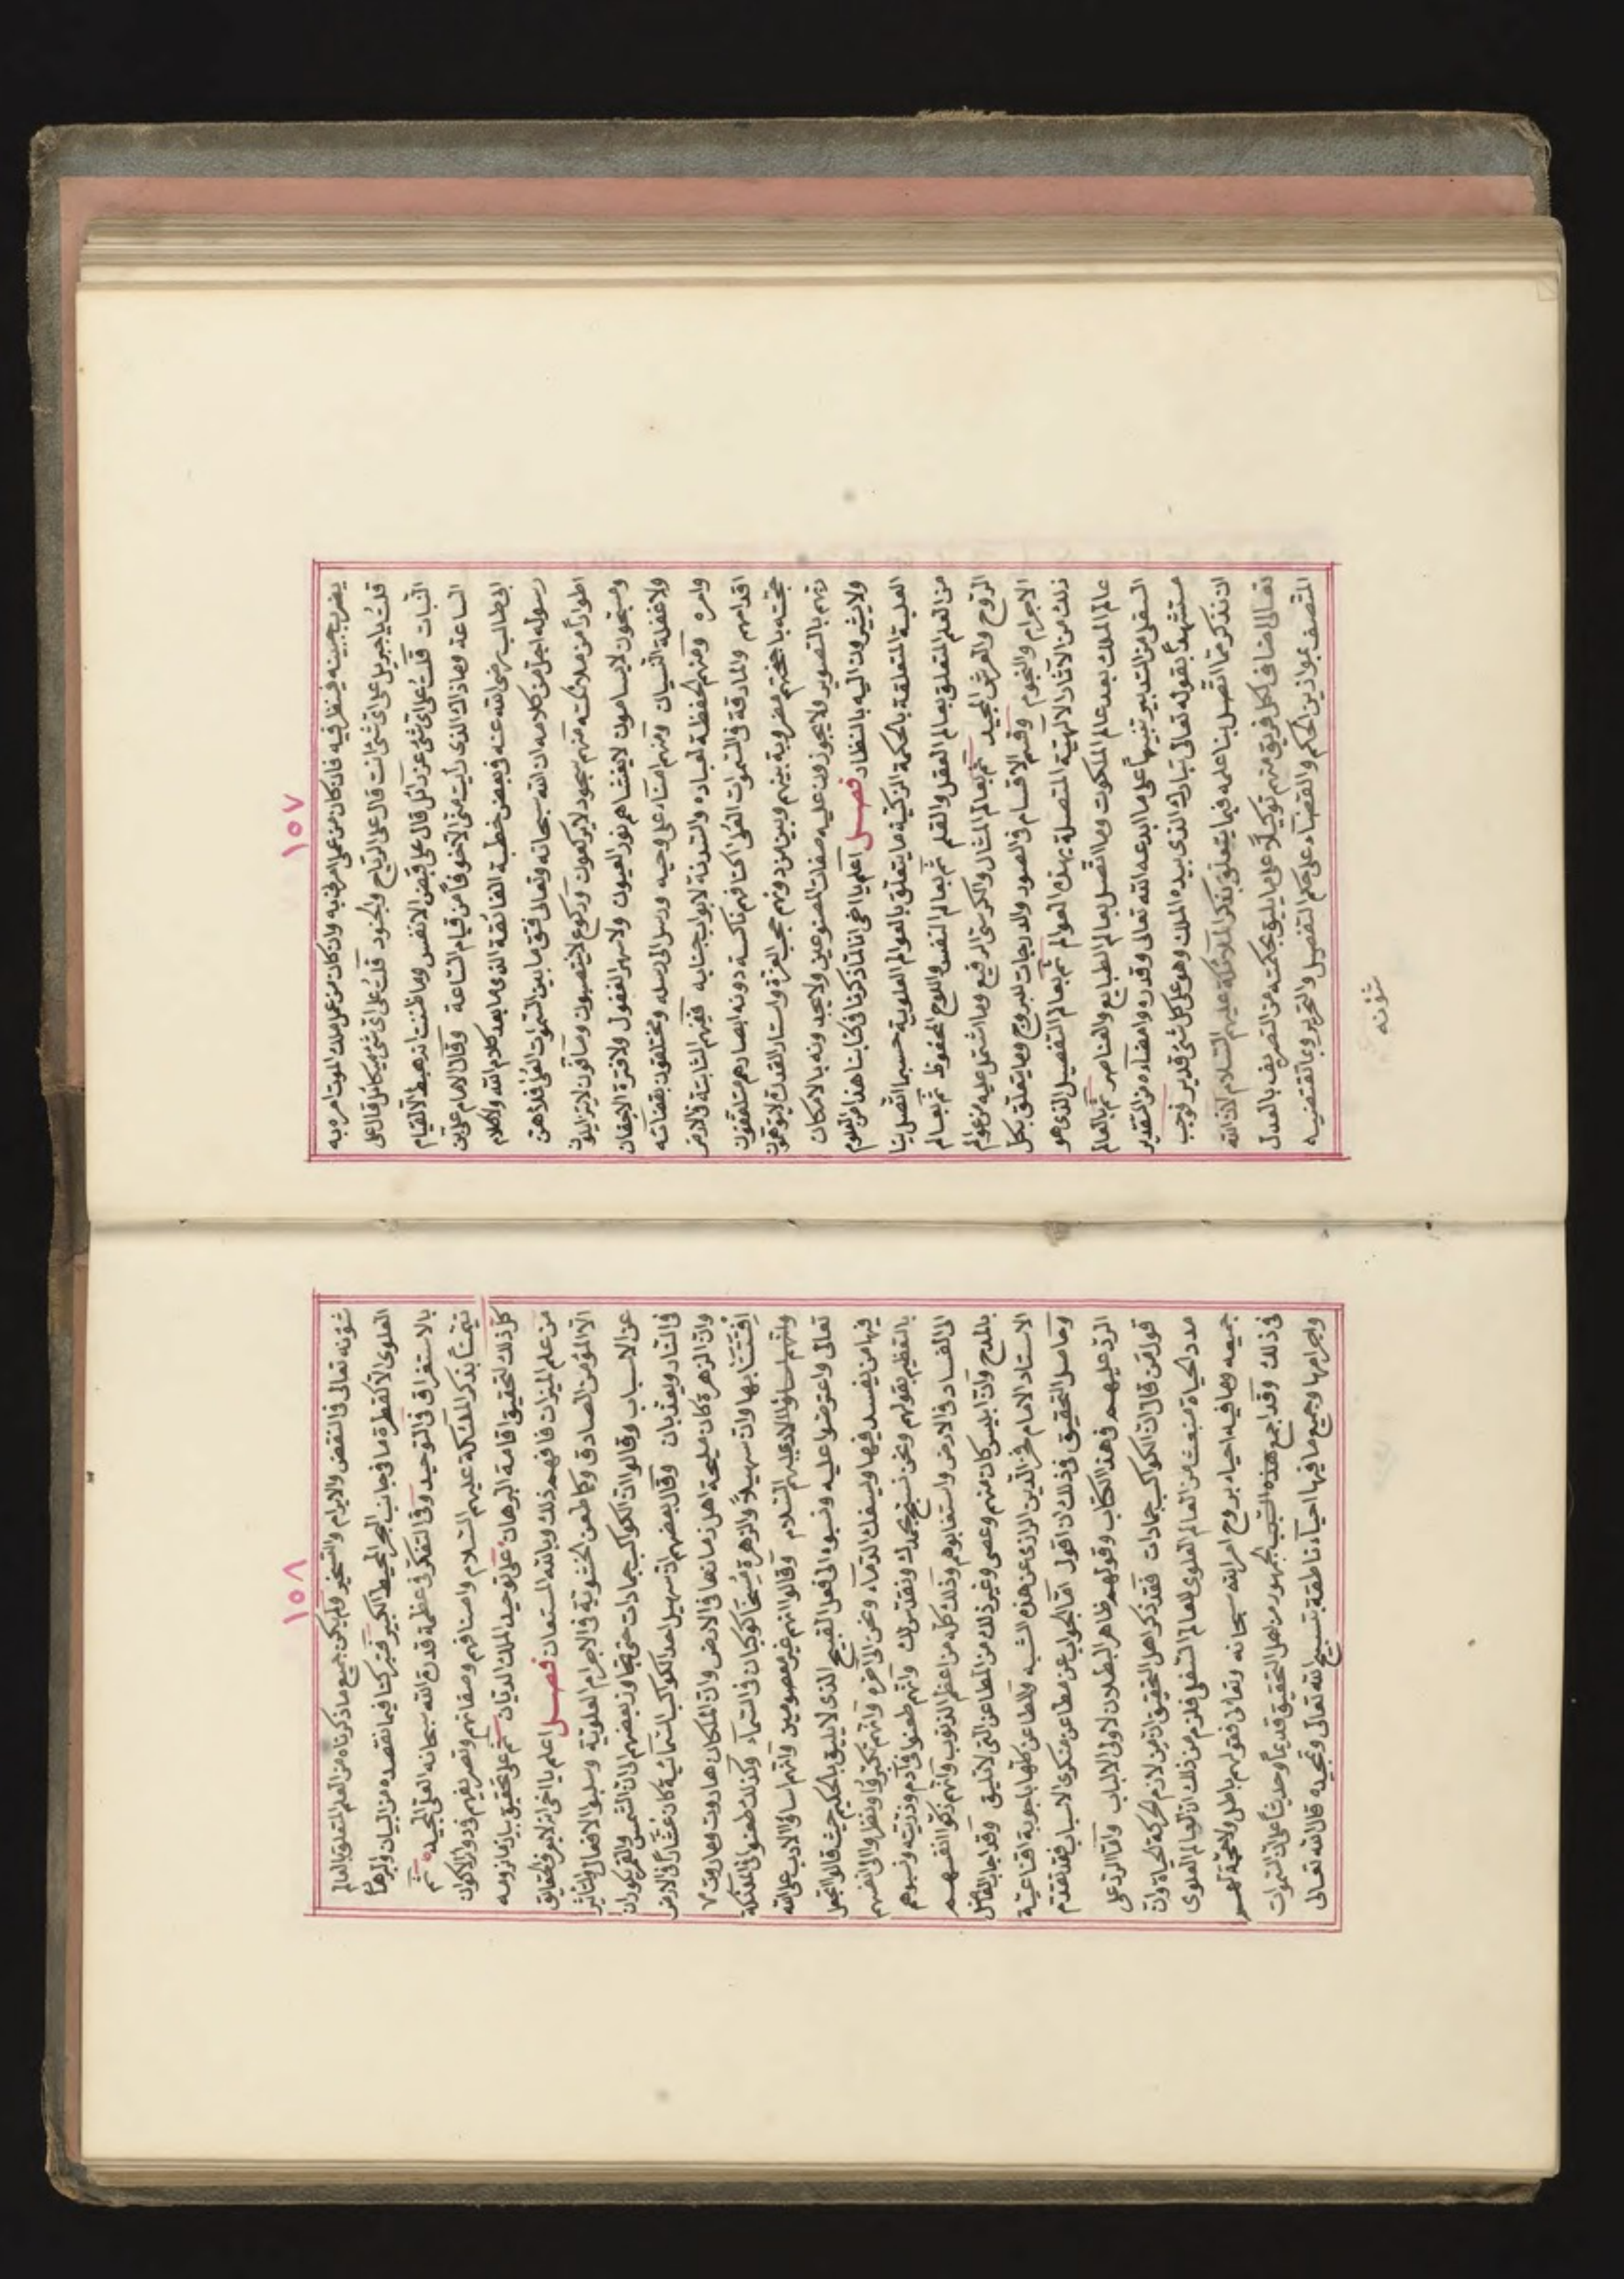 ١٥٧
يضرب جبينه فينظر فيه فان كان من عمل امر به وان كان من عمل ملك الموت امر به
قلت يا جبريل على اي شئ انت قال على الرياح والجنود قلت على اي شئ ميكائل قال على
النبات قلت على اي شئ عزرائل قال على قبض الانفس وما ظننت انه هبط الا لقيام
الساعة وما ذاك الذي رأيت مني الا خوفاً من قيام الساعة وقال الامام علي بن
ابي طالب رضي الله عنه في بعض خطبه الفائقة الذي ما بعد كلام الله وكلام
رسوله اجل من كلامه ان الله سبحانه وتعالى فتق ما بين السموات العلى فملأهن
اطواراً من ملائكته منهم سجود لا يركعون وركوع لا ينتصبون وصافون لا يتزايلون
ومسبحون لا يسأمون لا يغشاهم نوم العيون ولا سهو العقول ولا فترة الابدان
ولا غفلة النسيان ومنهم امناء على وحيه ورسل الى رسله ومختلفون بقضائه
وامره ومنهم الحفظة لعباده والسدنة لابواب جنانه فمنهم الثابتة في الارض
اقدامهم والمارقة في السموات العلى اكتافهم ناكسة دونه ابصارهم متلفعون
تحته باجنحتهم مضروبة بينهم وبين من دونهم حجب العزة واستار القدرة لا يتوهمون
ربهم بالتصوير ولا يجوزون عليه صفات المصنوعين ولا يحدونه بالامكان
ولا يشيرون اليه بالنظائر فصل اعلم يا اخي انا لما ذكرنا في كتابنا هذا من العلوم
العلية المتعلقة بالحكمة الزكية ما يتعلق بالعوالم العلوية حسبما اتصل بنا
من العلم المتعلق بعالم العقل والقلم ثم بعالم النفس واللوح المحفوظ ثم بعالم
الروح والعرش المجيد ثم بعالم المثال والكرسي الرفيع وما اشتمل عليه من عوالم
الاجرام والنجوم وقسم الاقسام في الصور والدرجات للبروج وما يتعلق بكل
ذلك من الآثار الالهية المتصلة بهذه العوالم ثم بعالم التفصيل الذي هو
عالم الملك بعد عالم الملكوت وما اتصل بعالم الطبايع والعناصر ثم بالعالم
السفلي من التدبير تنبيهاً على ما ابدعه الله تعالى وقدره وامضاه من التقدير
مستشهداً بقوله تعالى تبارك الذي بيده الملك وهو على كل شئ قدير فوجب
ان نذكر مما اتصل بنا علمه فيما يتعلق بذكر الملائكة عليهم السلام لان الله
تعالى اضاف لكل فريق منهم توكيلاً على ما يليق بحكمته من التصريف بالعدل
المتصف بموازين الحكم والقضاء على حكم التفصيل والتحرير وما تقتضيه
شؤنه
١٥٨
شؤنه تعالى في النقض والابرام والتسخير ولم يكن جميع ما ذكرناه من العلم المتعلق بالعالم
العلوي الا كقطرة ماء في جانب البحر المحيط الكبير فتبركنا فيما نقصده من البيان والبرهان
بالاستغراق في التوحيد وفي التفكر في عظمة قدرة الله سبحانه العلي المجيد ثم
تيمّناً بذكر الملائكة عليهم السلام واصنافهم وصفاتهم وتصريفهم ودوار الاكوان
كل ذلك لتحقيق اقامة البرهان على توحيد الملك الديان ثم على تحقيق بيان ما نرومه
من علم الميزان فافهم ذلك وبالله المستعان فصل اعلم يا اخي انه لا يعرف الحقايق
الا المؤمن الصادق وكما طعن الحشوية في الاجرام العلوية وسلبوا الافعال والتأثير
عن الاسباب وقالوا ان الكواكب جمادات حتى تجاوز بعضهم الى ان الشمس والقمر يكوران
في النار ويعذبان وقال بعضهم ان سهيل احد الكواكب السمائية كان عشاراً في الارض
وان الزهرة كان مليحة اهل زمانها في الارض وان الملكان هاروت وماروت
افتتنا بها وان سهيلاً والزهرة مُسخا كوكبان في السماء وكذلك طعنوا في الملائكة
وانهم اساؤا الادب عليهم السلام وقالوا انهم غير معصومين وانهم اساؤا الادب على الله
تعالى واعترضوا عليه ونسبوه الى فعل القبيح الذي لا يليق بالحكيم حيث قالوا اتجعل
فيها من يفسد فيها ويسفك الدماء ونحن الى آخره وانهم تكبروا ونظروا الى انفسهم
بالتعظيم بقولهم ونحن نسبح بحمدك ونقدس لك وانهم طعنوا في آدم وذريته ونسبوهم
الى الفساد في الارض واستغابوهم وذلك كله من اعظم الذنوب وانهم زكوا انفسهم
بالمدح وان ابليس كان منهم وعصى وغير ذلك من المطاعن التي لا تليق وقد اجاب الفاضل
الاستاد الامام فخر الدين الرازي عن هذه الشبه والمطاعن كلها باجوبة اقناعية
وحاصل التحقيق في ذلك ان اقول اما الجواب عن مطاعن منكري الاسباب فقد تقدم
الرد عليهم في هذا الكتاب وقولهم ظاهر البطلان لاولي الالباب واما الرد على
قول من قال ان الكواكب جمادات فقد ذكر اهل التحقيق ان من لازم الحركة الحياة وان
مدد الحياة منبعث من العالم العلوي للعالم السفلي فلزم من ذلك ان العالم العلوي
جميعه وما فيه احياء بروح امر الله سبحانه وتعالى فقولهم باطل ولا حجة لهم
في ذلك وقد اجمع هذه الشبه الجمهور من اهل التحقيق قديماً وحديثاً على ان السموات
واجرامها وجميع ما فيها احياء ناطقة بتسبيح الله تعالى وتمجيده قال الله تعالى